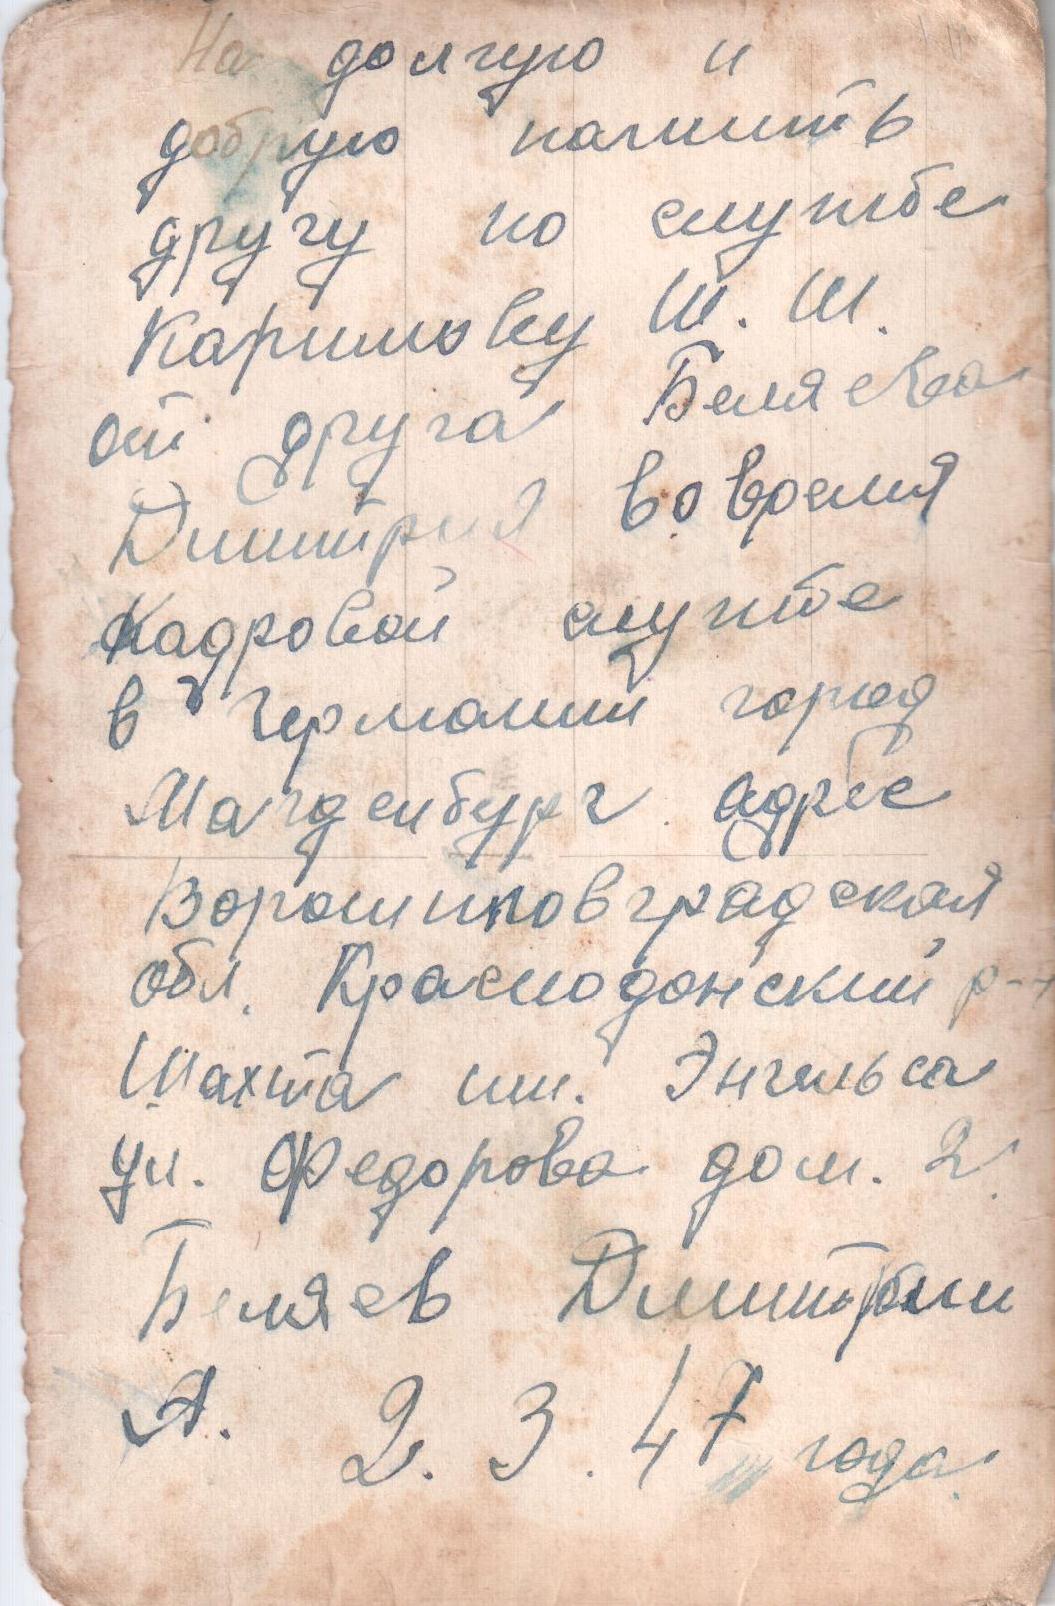 На долгую и
добрую памить
другу по службе
Каримову Ш. Ш.
от друга Беляева
Дмитрия во время
кадровой службе
в Германии город
Магденбург. адрес
Ворошиловградская
обл. Краснодонский р-н
Шахта им. Энгельса
ул. Федорова дом. 2.
Беляев Дмитрии
А. 2. 3. 47 года.